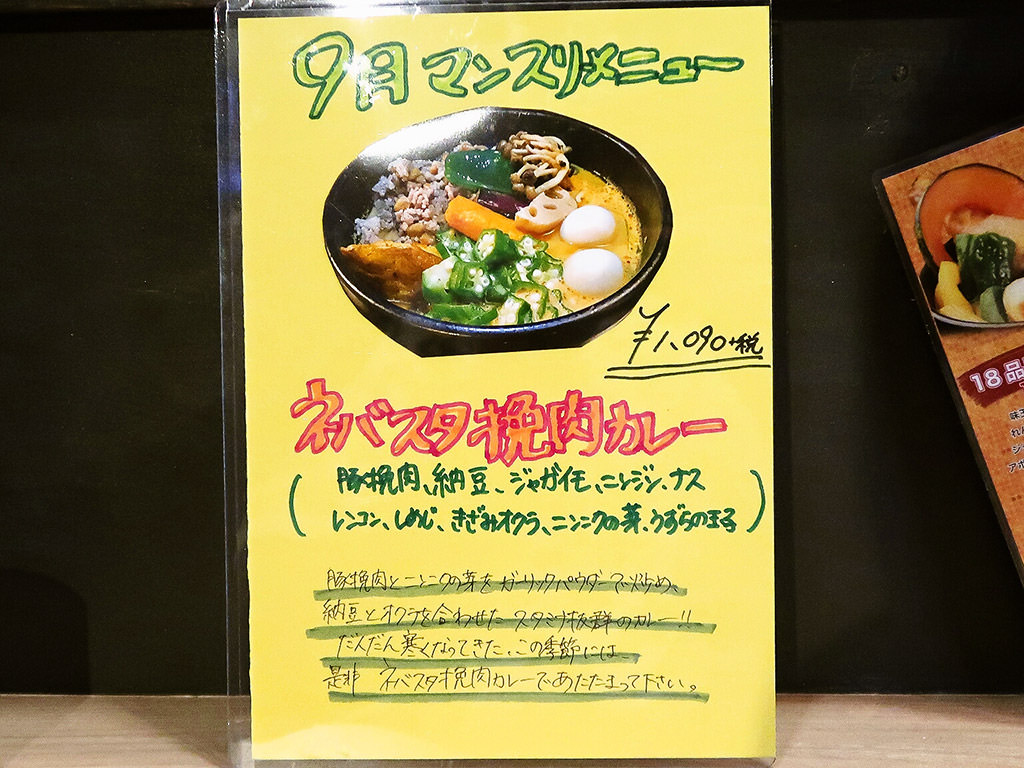 9月 マンスリーメニュー
¥1,090+税
ネバスタ挽肉カレー
(豚挽肉、納豆、ジャガイモ、ニンジン、ナス
レンコン、しめじ、きざみオクラ、ニンニクの芽、うずらの玉子)
豚挽肉とニンニクの芽をガーリックパウダーで炒め、
納豆とオクラを合わせたスタミナ抜群のカレー!!
だんだん寒くなってきた、この季節には、
是非 ネバスタ挽肉カレーであたたまって下さい。
18品